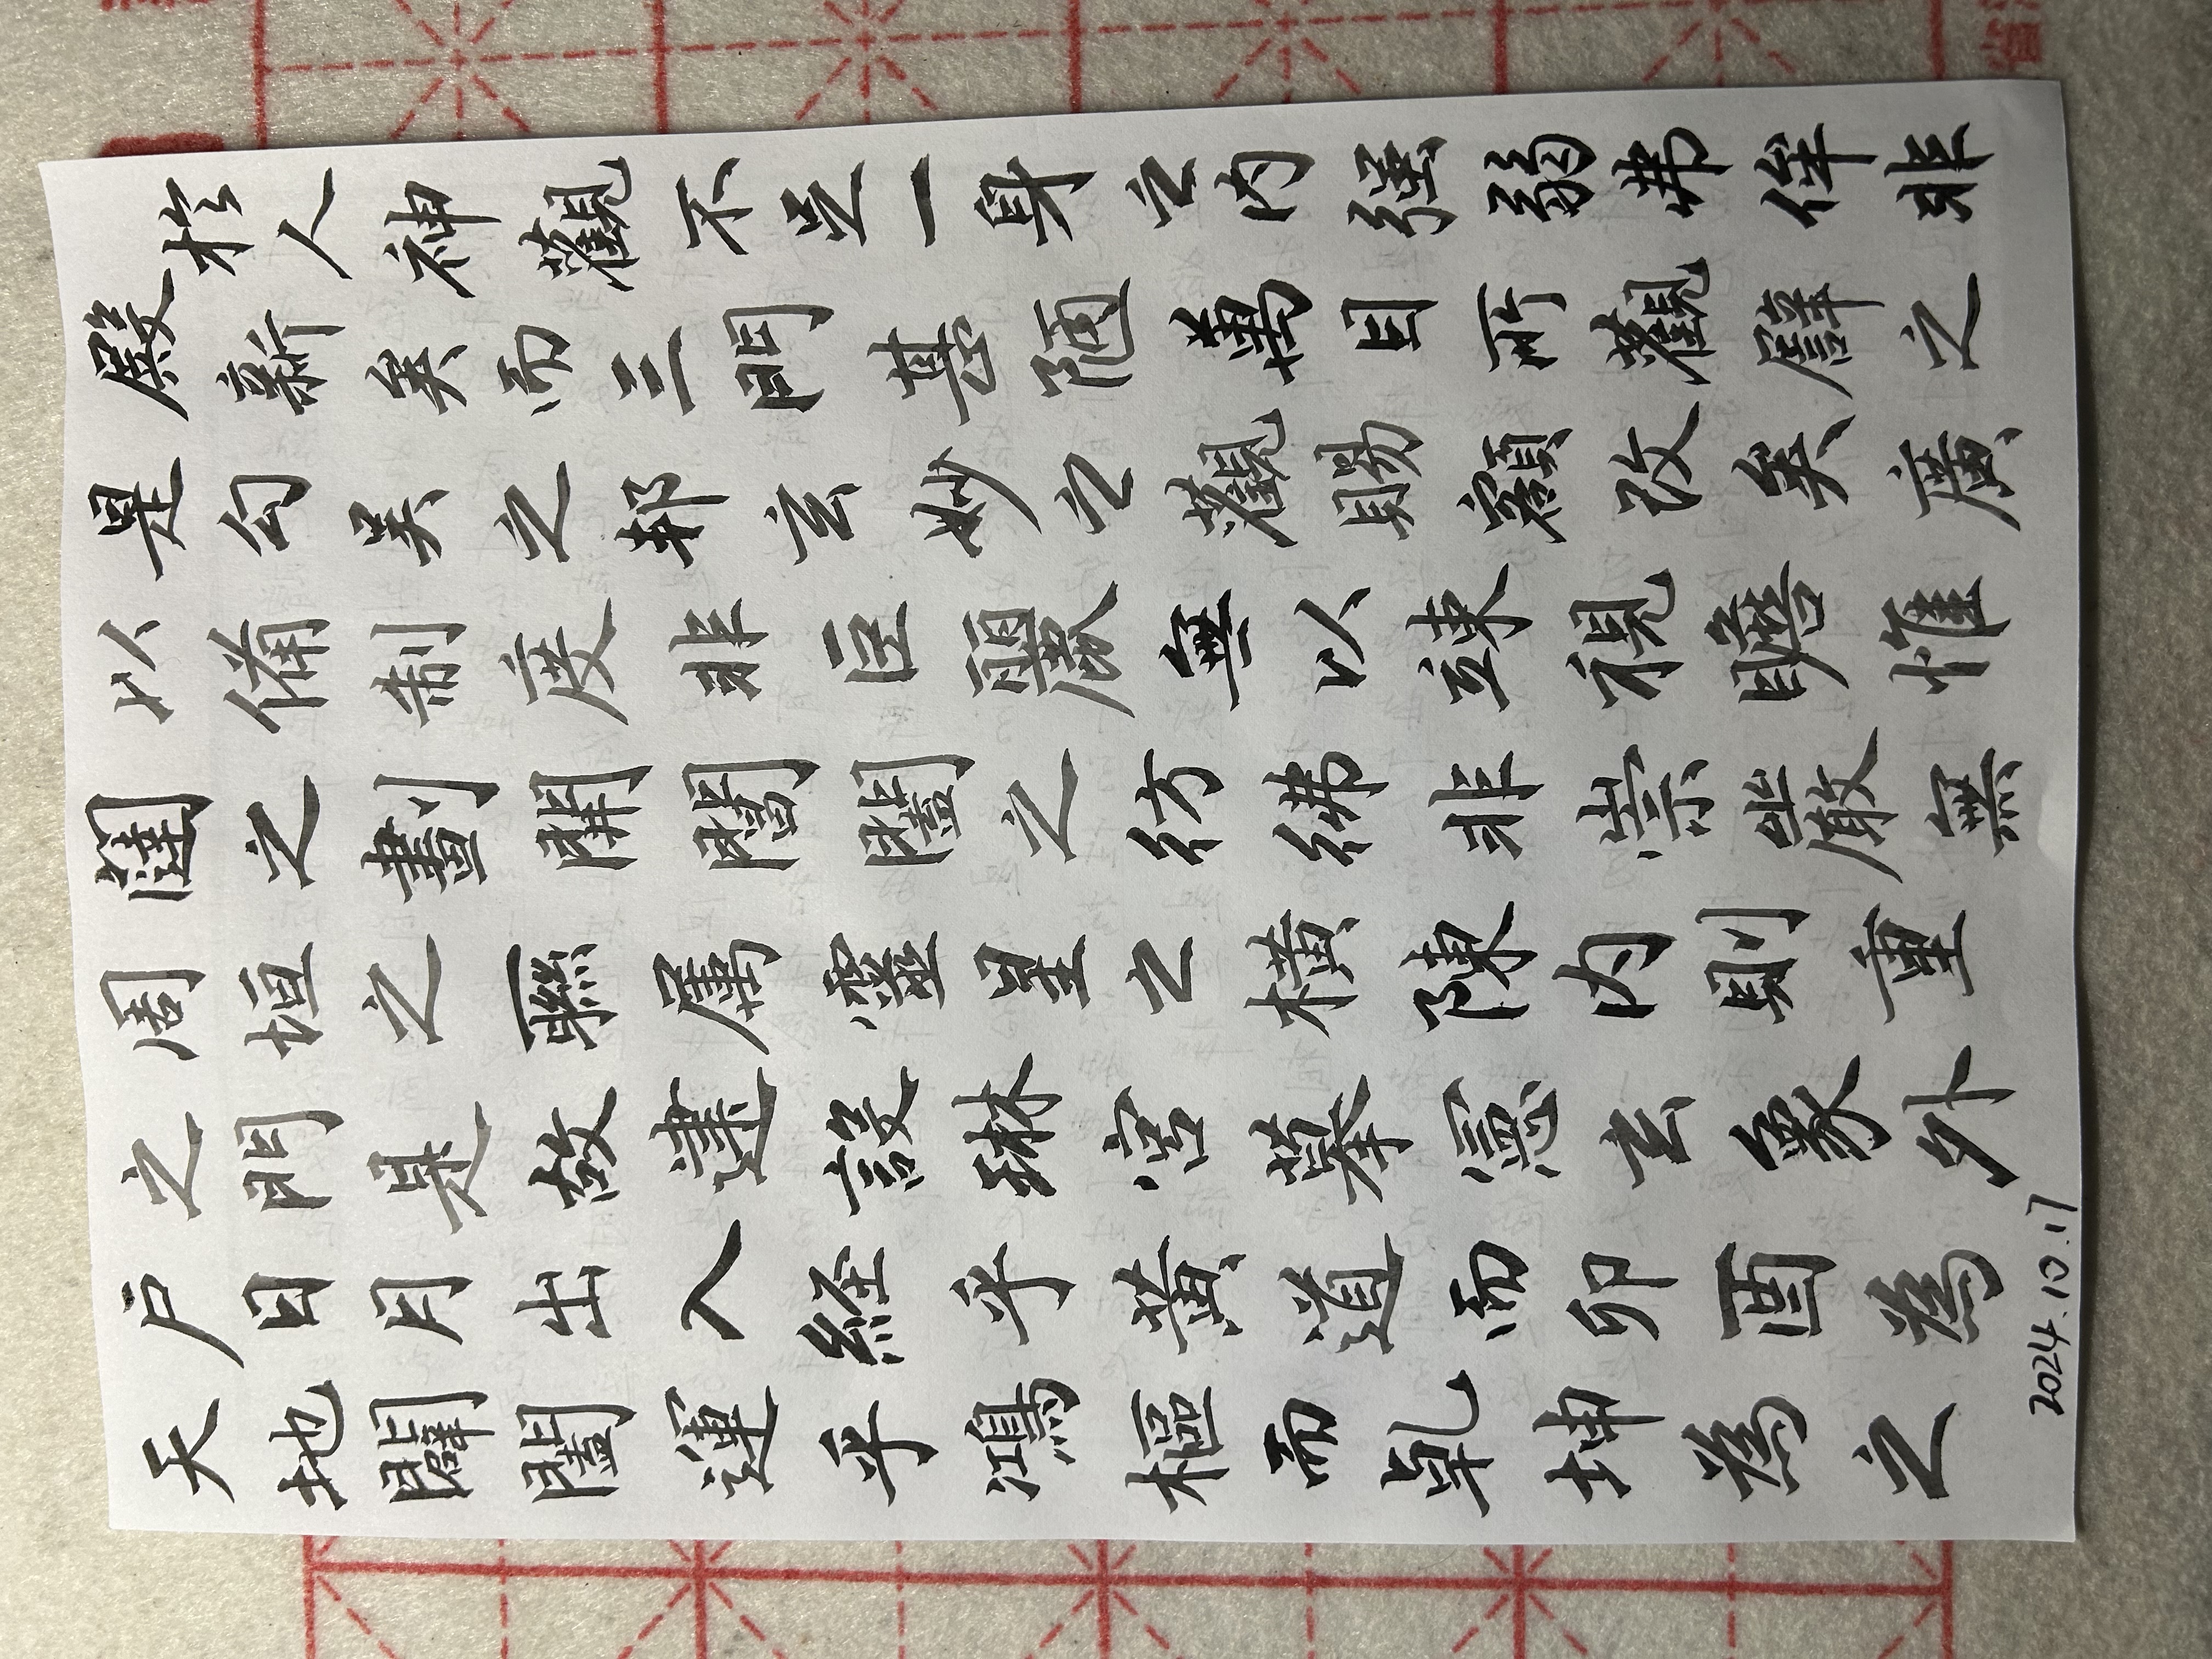 於人神觀不足一身之内强弱弗侔非
殿新矣而三門甚陋萬目所觀譬之
是勾吴之邦玄妙之觀賜額改矣廣
以備制度非巨麗無以竦視瞻惟
闥之劃開閶闔之彷彿非崇嚴無
周垣之聯属靈星之横陳内則重
之門是故建設琳宮摹憲玄象外
户日月出入経乎黄道而卯酉為
天地闢闔運乎鴻樞而乹坤為之
2024.10.17